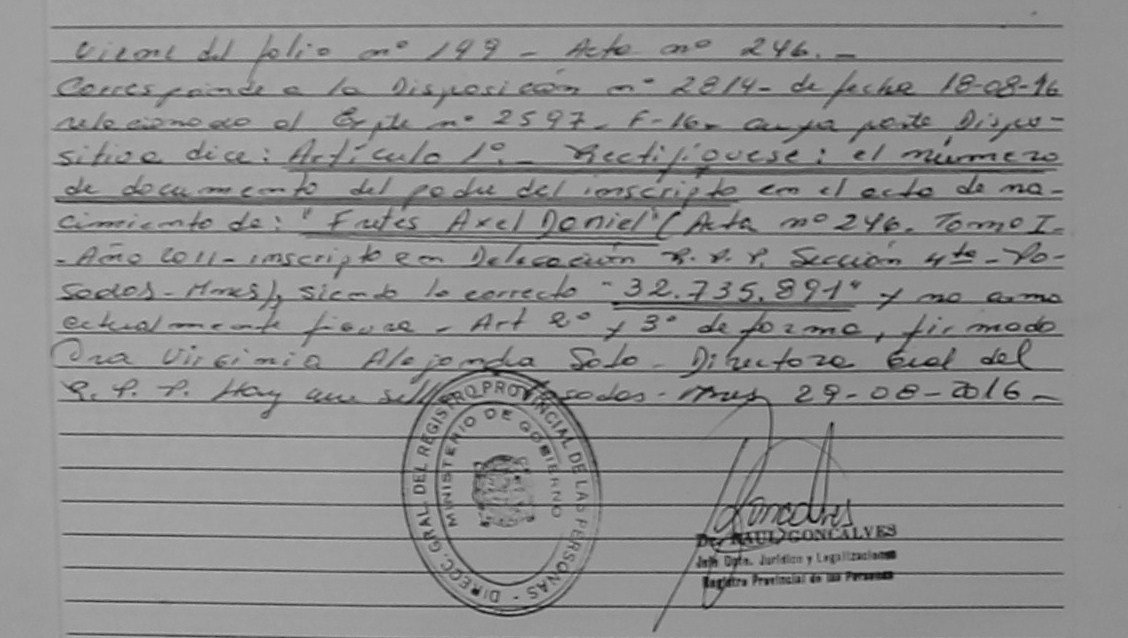 Viene del folio nº 199 - Acta nº 246.-
Corresponde a la Disposición nº 2814- de fecha 18-08-16
relacionado al Expte nº 2597- F-16- cuya parte Dispo-
sitiva dice: Artículo 1º.- Rectifíquese: el número
de documento del padre del inscripto en el acta de na-
cimiento de: "Fretes Axel Daniel" (Acta nº 246. Tomo I-
-Año 2011- inscripto en Delegación R.P.P. Sección 4ta - Po-
sadas - Mnes), siendo lo correcto "32.735.891" y no como
actualmente figura - Art 2º y 3º de forma, firmado
Dra Virginia Alejandra Soto - Directora Gral del
R.P.P. Hay un sello Posadas - Mnes 29-08-2016-
DIRECC. GRAL. DEL REGISTRO PROVINCIAL DE LAS PERSONAS -
MINISTERIO DE GOBIERNO
Goncalves
Dr. RAUL GONCALVES
Jefe Dpto. Jurídico y Legalizaciones
Registro Provincial de las Personas